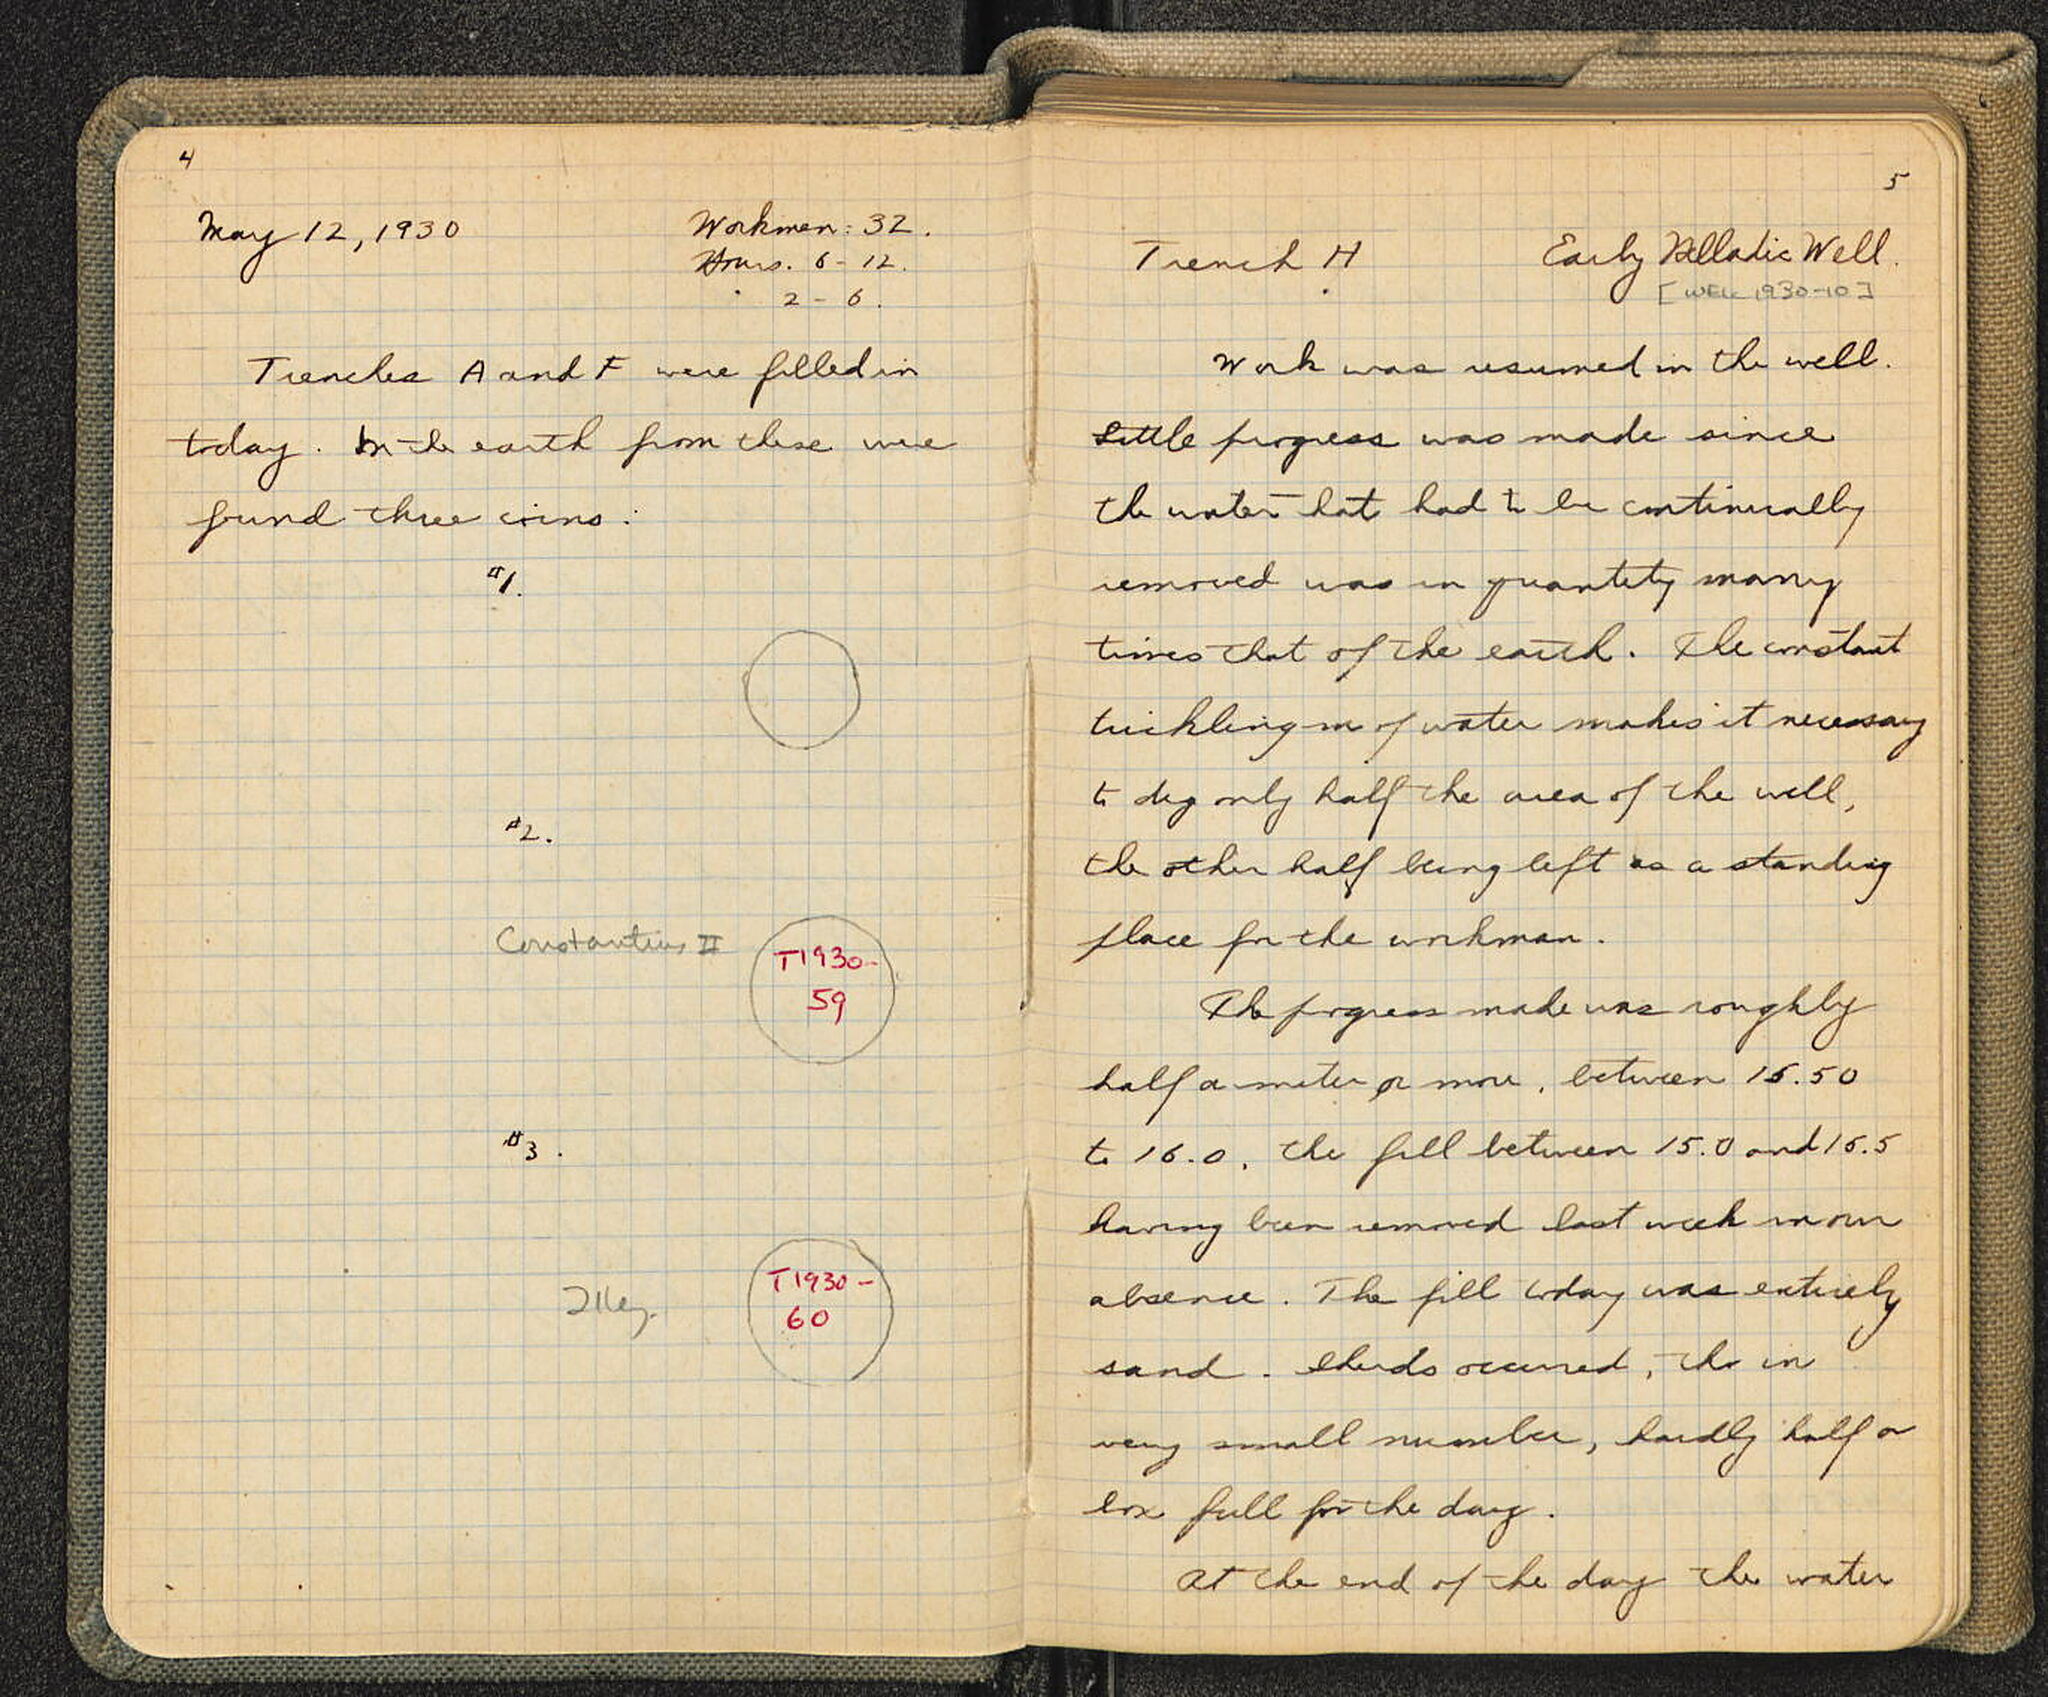 4
May 12, 1930
Workmen: 32.
Hours. 6 - 12.
2 - 6.
Trenches A and F were filled in
today. In the earth from these were
found three coins:
#1.
#2.
Constantius II
T1930-
59
#3.
Illeg.
T1930-
60
5
Trench H
Early Helladic Well.
[WELL 1930-10]
Work was resumed in the well.
Little progress was made since
the water that had to be continually
removed was in quantity many
times that of the earth. The constant
trickling in of water makes it necessary
to dig only half the area of the well,
the other half being left as a standing
place for the workman.
The progress made was roughly
half a meter or more, between 15.50
to 16.0, the fill between 15.0 and 15.5
having been removed last week in our
absence. The fill today was entirely
sand. Sherds occurred, tho in
very small number, hardly half a
box full for the day.
At the end of the day the water